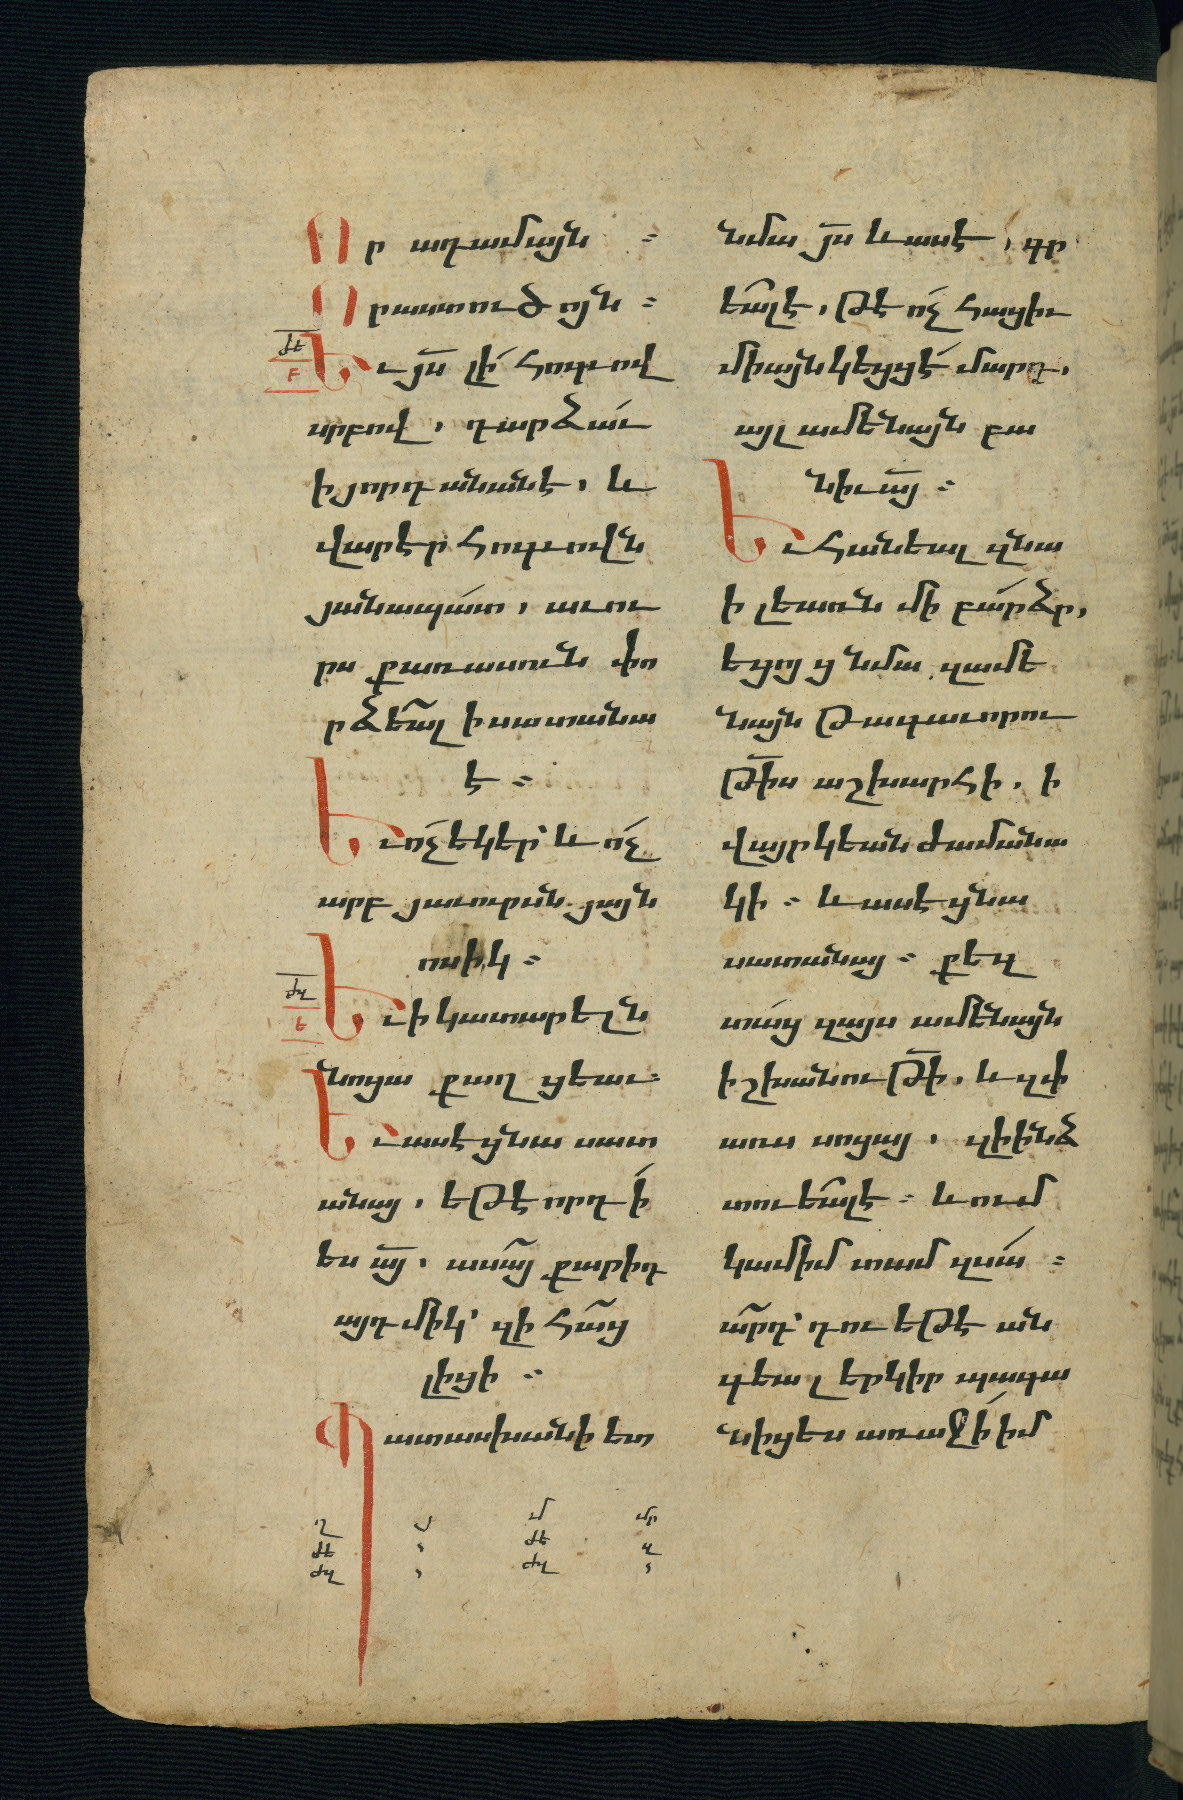 Որ ադամայն ։
Որ աստուծոյն ։
ԺԵ
Բ
Եւ յս̄ լի́ հոգւով
սրբով , դարձաւ́
ի յորդանանէ , և
վարէր հոգւովն
յանապատ́ , աւու
րս քառասուն փո
րձեա̃լ ի սատանա
է ։
Եւ ոչ́ եկեր՝ և ոչ́
արբ յաւուրսն յայն
ոսիկ ։
ԺԶ
Ե
Եւ ի կատարելն
նոցա քաղցեաւ ։
Եւ ասէ ցնա սատ
անայ , եթէ որդի́
ես ա̄յ , ասա̃ քարիդ
այդմիկ՝ զի հա̃ց
լիցի ։
Պատասխանի ետ
նմա յս̄ և ասէ , գր
եա̃լ է , թէ ոչ́ հացիւ
միայն կեցցէ́ մարդ ,
այլ ամենայն բա
նիւ ա̄յ ։
Եւ հանեալ զնա
ի լեառն մի բարձ́ր ,
եցոյց նմա զամե
նայն թագաւորու
թի̄ս աշխարհի , ի
վայրկեան ժամանա
կի ։ և ասէ ցնա
սատանայ ։ քեզ
տաց́ զայս ամենայն
իշխանութի̄ , և զփ
առս սոցայ , զի ինձ
տուեա̃լ է ։ և ում
կամիմ տամ զսա́ ։
ա̃րդ՝ դու եթէ ան
գեալ երկիր պագա
նիցես առաջի́ իմ
Ղ Յ Մ ՄՐ
ԺԵ , ԺԵ Զ
ԺԶ , ԺԶ ,